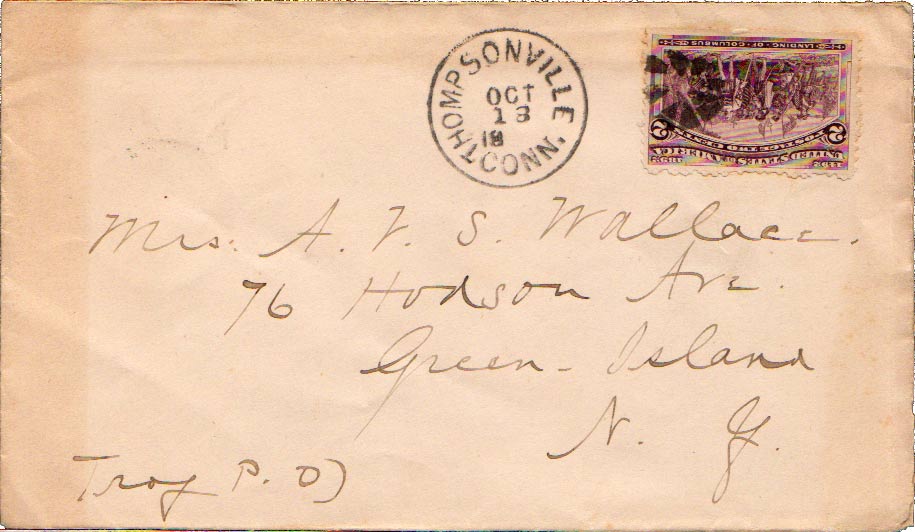 THOMPSONVILLE
OCT
18
CONN.
LANDING OF COLUMBUS
POSTAGE TWO CENTS
2 2
UNITED STATES OF AMERICA
Mrs. A. V. S. Wallace.
76 Hodson Ave.
Green-Island
N. Y.
Troy P. O)